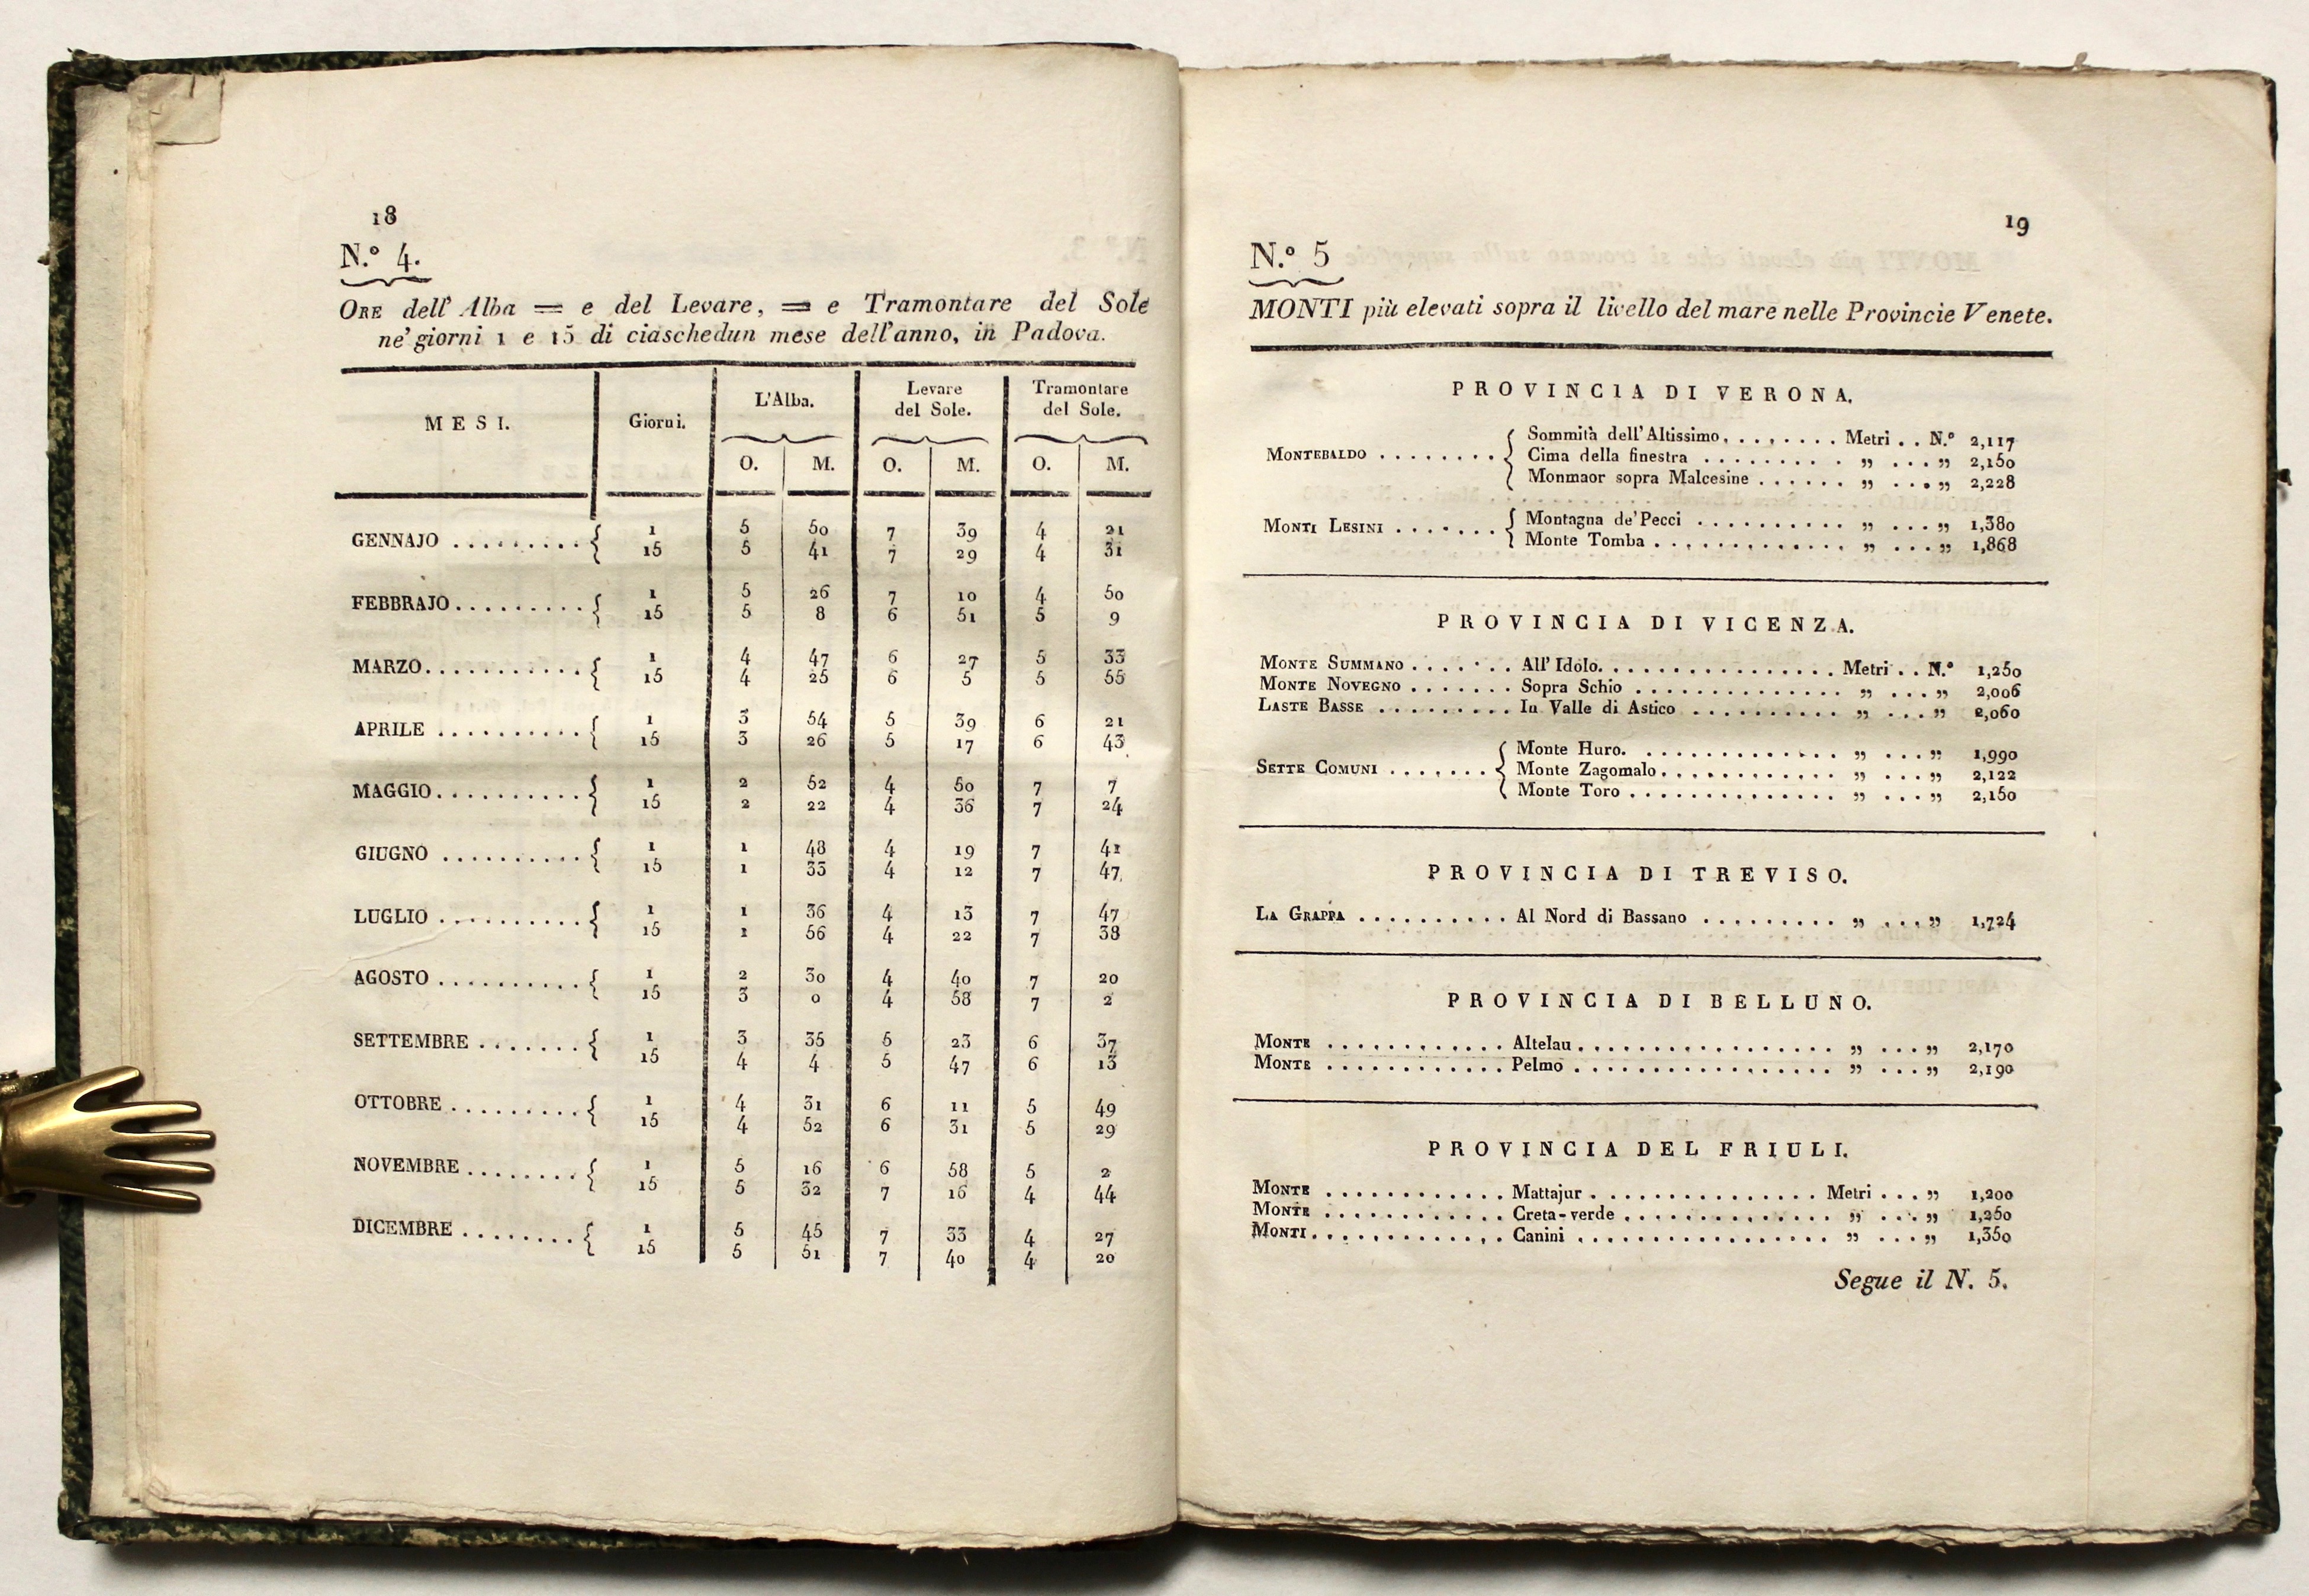 18
N.º 4.
ORE dell' Alba = e del Levare, = e Tramontare del Sole
ne' giorni 1 e 15 di ciaschedun mese dell'anno, in Padova.
MESI. Giorni. L'Alba. Levare del Sole. Tramontare del Sole.
O. M. O. M. O. M.
GENNAJO . . . . . . . . . { 1 5 50 7 39 4 21
15 5 41 7 29 4 31
FEBBRAJO . . . . . . . . . { 1 5 26 7 10 4 50
15 5 8 6 51 5 9
MARZO . . . . . . . . . . . { 1 4 47 6 27 5 33
15 4 25 6 5 5 55
APRILE . . . . . . . . . . { 1 3 54 5 39 6 21
15 3 26 5 17 6 43
MAGGIO . . . . . . . . . . { 1 2 52 4 50 7 7
15 2 22 4 36 7 24
GIUGNO . . . . . . . . . . { 1 1 48 4 19 7 41
15 1 33 4 12 7 47
LUGLIO . . . . . . . . . . { 1 1 36 4 13 7 47
15 1 56 4 22 7 38
AGOSTO . . . . . . . . . . { 1 2 30 4 40 7 20
15 3 0 4 58 7 2
SETTEMBRE . . . . . . . { 1 3 35 5 23 6 37
15 4 4 5 47 6 13
OTTOBRE . . . . . . . . . { 1 4 31 6 11 5 49
15 4 52 6 31 5 29
NOVEMBRE . . . . . . . . { 1 5 16 6 58 5 2
15 5 32 7 16 4 44
DICEMBRE . . . . . . . . { 1 5 45 7 33 4 27
15 5 51 7 40 4 20
19
N.º 5
MONTI più elevati sopra il livello del mare nelle Provincie Venete.
PROVINCIA DI VERONA.
MONTEBALDO . . . . . . . . { Sommità dell'Altissimo . . . . . . . . Metri . . N.º 2,117
Cima della finestra . . . . . . . . . „ . . . „ 2,150
Monmaor sopra Malcesine . . . . . . „ . . . „ 2,228
MONTI LESINI . . . . . . . { Montagna de' Pecci . . . . . . . . . . „ . . . „ 1,380
Monte Tomba . . . . . . . . . . . . „ . . . „ 1,868
PROVINCIA DI VICENZA.
MONTE SUMMANO . . . . . . . All' Idolo. . . . . . . . . . . . . . . . Metri . . N.º 1,250
MONTE NOVEGNO . . . . . . . Sopra Schio . . . . . . . . . . . . . . „ . . . „ 2,006
LASTE BASSE . . . . . . . . . In Valle di Astico . . . . . . . . . . „ . . . „ 2,060
SETTE COMUNI . . . . . . . { Monte Huro. . . . . . . . . . . . . . „ . . . „ 1,990
Monte Zagomalo . . . . . . . . . . . . „ . . . „ 2,122
Monte Toro . . . . . . . . . . . . . . „ . . . „ 2,150
PROVINCIA DI TREVISO.
LA GRAPPA . . . . . . . . . . Al Nord di Bassano . . . . . . . . . „ . . . „ 1,724
PROVINCIA DI BELLUNO.
MONTE . . . . . . . . . . . . Altelau . . . . . . . . . . . . . . . . . „ . . . „ 2,170
MONTE . . . . . . . . . . . . Pelmo . . . . . . . . . . . . . . . . . „ . . . „ 2,190
PROVINCIA DEL FRIULI.
MONTE . . . . . . . . . . . . Mattajur . . . . . . . . . . . . . . . Metri . . . „ 1,200
MONTE . . . . . . . . . . . . Creta-verde . . . . . . . . . . . . . . „ . . . „ 1,250
MONTI . . . . . . . . . . . . . Canini . . . . . . . . . . . . . . . . . „ . . . „ 1,350
Segue il N. 5.